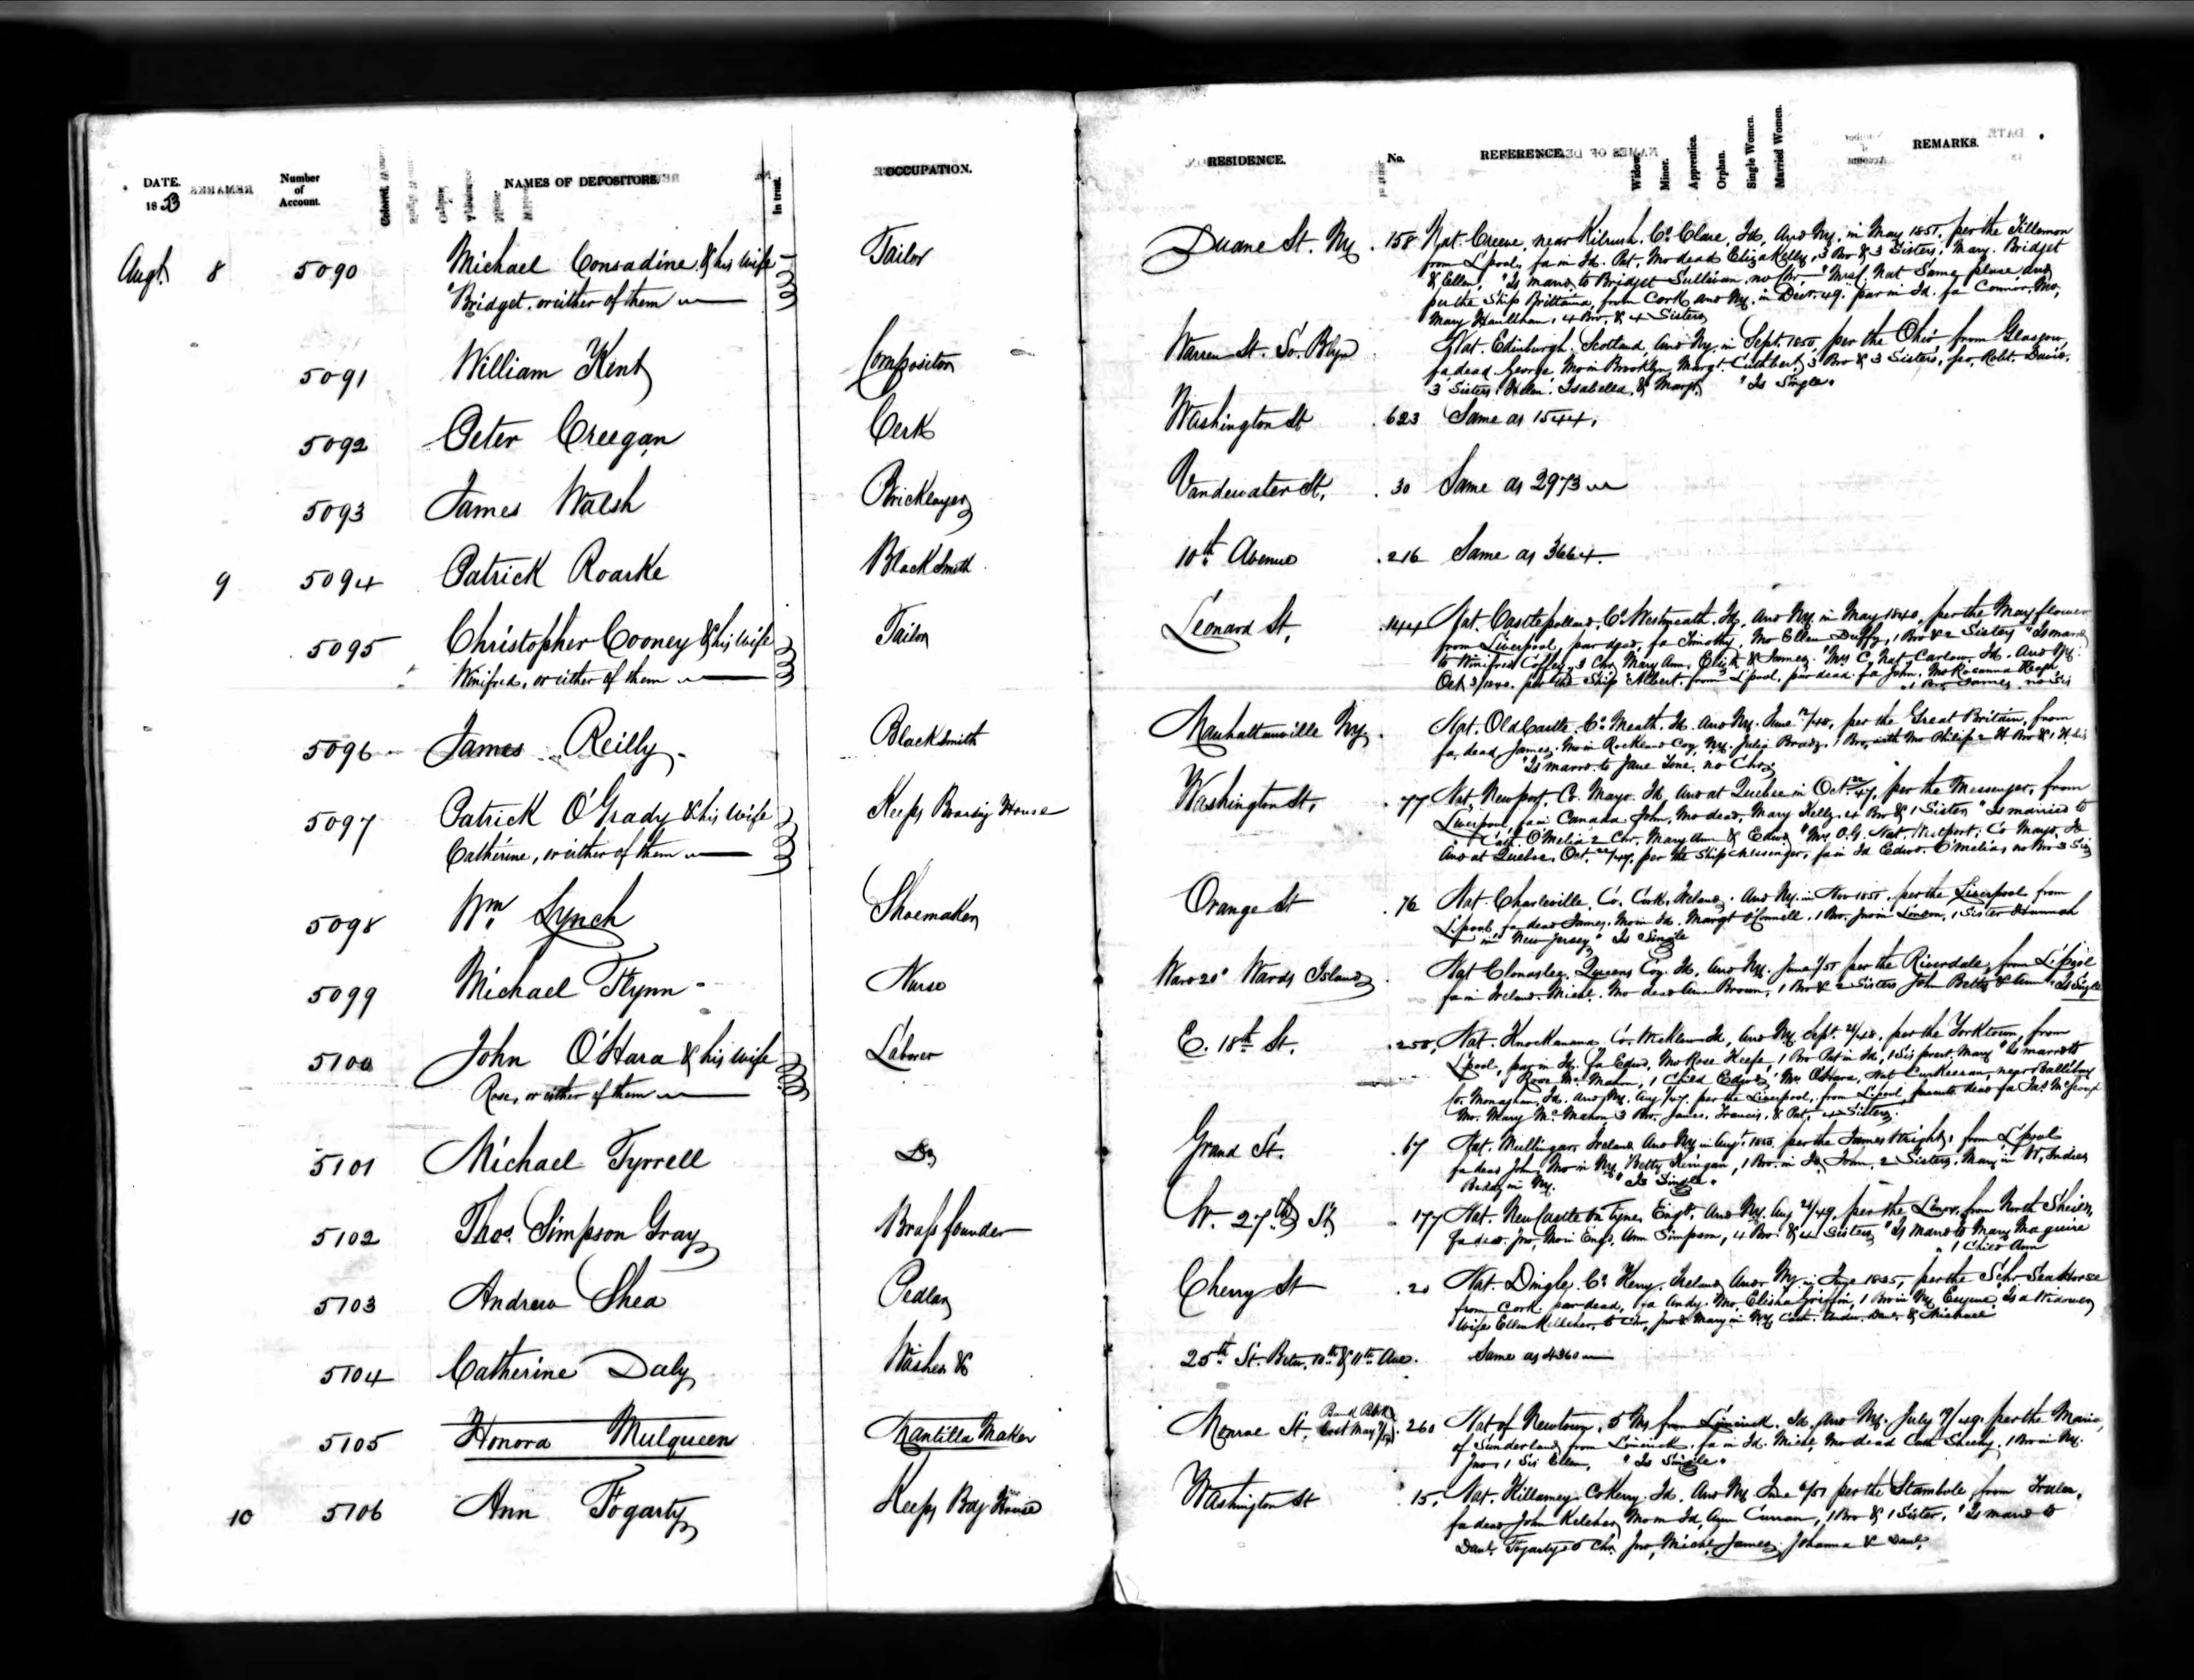 DATE. Number of Account. NAMES OF DEPOSITORS. In trust. OCCUPATION. RESIDENCE. No. REFERENCE. Widow. Minor. Apprentice. Orphan. Single Women. Married Women. REMARKS.
1853
Augt. 8 5090 Michael Consadine & his wife Tailor Duane St. Ny. 158 Nat. Creeve, near Kilrush, Co. Clare, Id, Arvd Ny. in May 1851, per the
Bridget, or either of them from L'pool, fa in Id. Pat, Mo dead Eliza Kelly, 3 Bro & 3 Sisters, Mary, Bridget
& Ellen, "Is marrd. to Bridget Sullivan, no Chr - "Mrs C. Nat Same place, Arvd
per the Ship Brittania, from Cork Arvd Ny. in Decr. 49. par in Id. fa Connor, Mo,
Mary 4 Bro, & 4 Sisters
5091 William Kent Compositor Warren St. So. Bklyn Nat. Edinburgh, Scotland, Arvd Ny. in Sept. 1850, per the Ohio from Glasgow,
fa dead, George, Mo in Brooklyn, Margt. Cuthbert, 3 Bro & 3 Sisters, Geo, Robt. David,
3 Sisters, Helen, Isabella, & Margt. "Is Single"
5092 Peter Creegan Clerk Washington St 623 Same as 1544.
5093 James Walsh Bricklayer Vandewater St, 30 Same as 2973
9 5094 Patrick Roarke BlackSmith 10th. Avenue 216 Same as 3664.
5095 Christopher Cooney & his wife Tailor Leonard St, 144 Nat. Castlepollard, Co. Westmeath, Id, Arvd Ny. in May 1840, per the Mayflower
Winifred, or either of them from Liverpool, par dead, fa Timothy, Mo Ellen Duffy, 1 Bro & 2 Sisters "Is marrd
to Winifred Coffey, 3 Chr, Mary Ann, Eliza & James, "Mrs C. Nat Carlow Id. Arvd Ny.
Oct 3/1840. per the Ship Albert, from L'pool, par dead, fa John, Mo Rosanna
1 Bro James, no Sis
5096 James Reilly Blacksmith Manhattanville Ny. Nat. OldCastle, Co. Meath, Id. Arvd Ny. June per the Great Britain, from
fa. dead, James, Mo in Rockland Coy, Ny. Julia Brady, 1 Bro, with Mo Philip 2 H Bro & 1 H. Sis
"Is marrd. to Jane no Chr
5097 Patrick O'Grady & his wife Keeps Boardig House Washington St, 77 Nat. Newport, Co. Mayo, Id, Arvd at Quebec in Oct 22/47, per the Messenger, from
Catherine, or either of them Liverpool, fa in Canada John, Mo dead, Mary Kelly, 4 Bro & 1 Sister, "Is married to
Cath. O'Melia 2 Chr. Mary Ann & Edwd. "Mrs O.G. Nat. Co Mayo, Id
Arvd at Quebec, Oct. 22/47, per the Ship Messenger, fa in Id Edwd. O'Melia, no Bro 3 Sis
5098 Wm. Lynch Shoemaker Orange St 76 Nat Charleville, Co. Cork, Ireland, Arvd Ny. in Nov 1850, per the Liverpool from
L'pool, fa dead James, Mo in Id. Margt O'Connell, 1 Bro. Jno in London, 1 Sister Hannah
in New Jersey "Is Single
5099 Michael Flynn Nurse Ward 20 Wards Island Nat Clonaslee, Queens Coy. Id, Arvd Ny. June per the Riverdale, from L'pool
fa in Ireland. Michl. Mo dead Ann Brown, 1 Bro & 2 Sisters John Betty & Ann "Is Single
5100 John O'Hara & his wife Laborer E. 18th St. 250, Nat. Co. Id, Arvd Ny Sept. per the Yorktown, from
Rose, or either of them L'pool, par in Id. fa Edwd, Mo Rose Keefe, 1 Bro Pat in Id, 1 Sis Mary "Is marrd to
Rose Mc. Mahon, 1 Child Edwd, "Mrs O'Hara, Nat near Ballibay
Co. Monaghan, Id. Arvd Ny. Aug per the Liverpool, from L'pool, parents dead fa
Mo. Mary Mc. Mahon 3 Bro. James, Francis, & Pat, 4 Sisters
5101 Michael Tyrrell Do Grand St. 67 Nat. Mullingar, Ireland, Arvd Ny in Augt. 1850, per the James Wright, from L'pool
fa dead John, Mo in Ny. Betty 1 Bro. in Id. John, 2 Sisters, Mary in W. Indies
in Ny. "Is Single"
5102 Thos. Simpson Gray Brass founder W. 27th St 177 Nat. NewCastle on Tyne, Engd. Arvd Ny. Aug 24/49, per the from North Shields
fa dead. Jno, Mo in Engd. Ann Simpson, 4 Bro & 4 Sisters "Is marrd to Mary Maguire
1 Child Ann
5103 Andrew Shea Pedlar Cherry St 20 Nat. Dingle, Co. Kerry, Ireland, Arvd Ny in June 1835, per the Schr. SeaHorse
from Cork par dead, fa Andy, Mo, Elisha Griffin, 1 Bro in Ny Eugene Is a Widower
Wife Ellen Kelleher, 6 Chr, Jno & Mary in Ny Cath. Andw. Danl. & Michael
5104 Catherine Daly Washer & 25th. St. Betw. 10th. & 11th Ave. Same as 4360
5105 Honora Mulqueen Mantilla Maker Monroe St. Lost May 260 Nat of Newtown, 5 Ms from Limerick, Id, Arvd Ny. July 19/49. per the Maria,
of Sunderland, from Limerick, fa in Id. Michl, Mo dead Cath Sheehy, 1 Bro in Ny.
Jno, 1 Sis Ellen, "Is Single"
10 5106 Ann Fogarty Keeps Bdg House Washington St 15, Nat. Killarney Co Kerry, Id. Arvd Ny June per the Stambole, from Tralee,
fa dead John Keleher, Mo in Id, Ann Curran, 1 Bro & 1 Sister, "Is marrd to
Danl. Fogarty 5 Chr. Jno, Michl, James, Johanna & Danl.